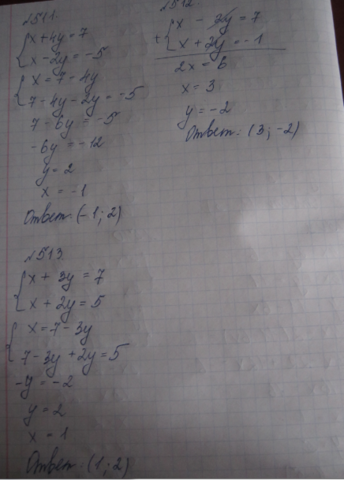 №511
{x+4y=7
{x-2y=-5
{x=7-4y
7-4y-2y=-5
7-6y=-5
-6y=-12
y=2
x=-1
Ответ: (-1; 2)
№512
+{x-2y=7
x+2y=-1
2x=6
x=3
y=-2
Ответ: (3; -2)
№513
{x+3y=7
{x+2y=5
{x=7-3y
7-3y+2y=5
-y=-2
y=2
x=1
Ответ: (1; 2)